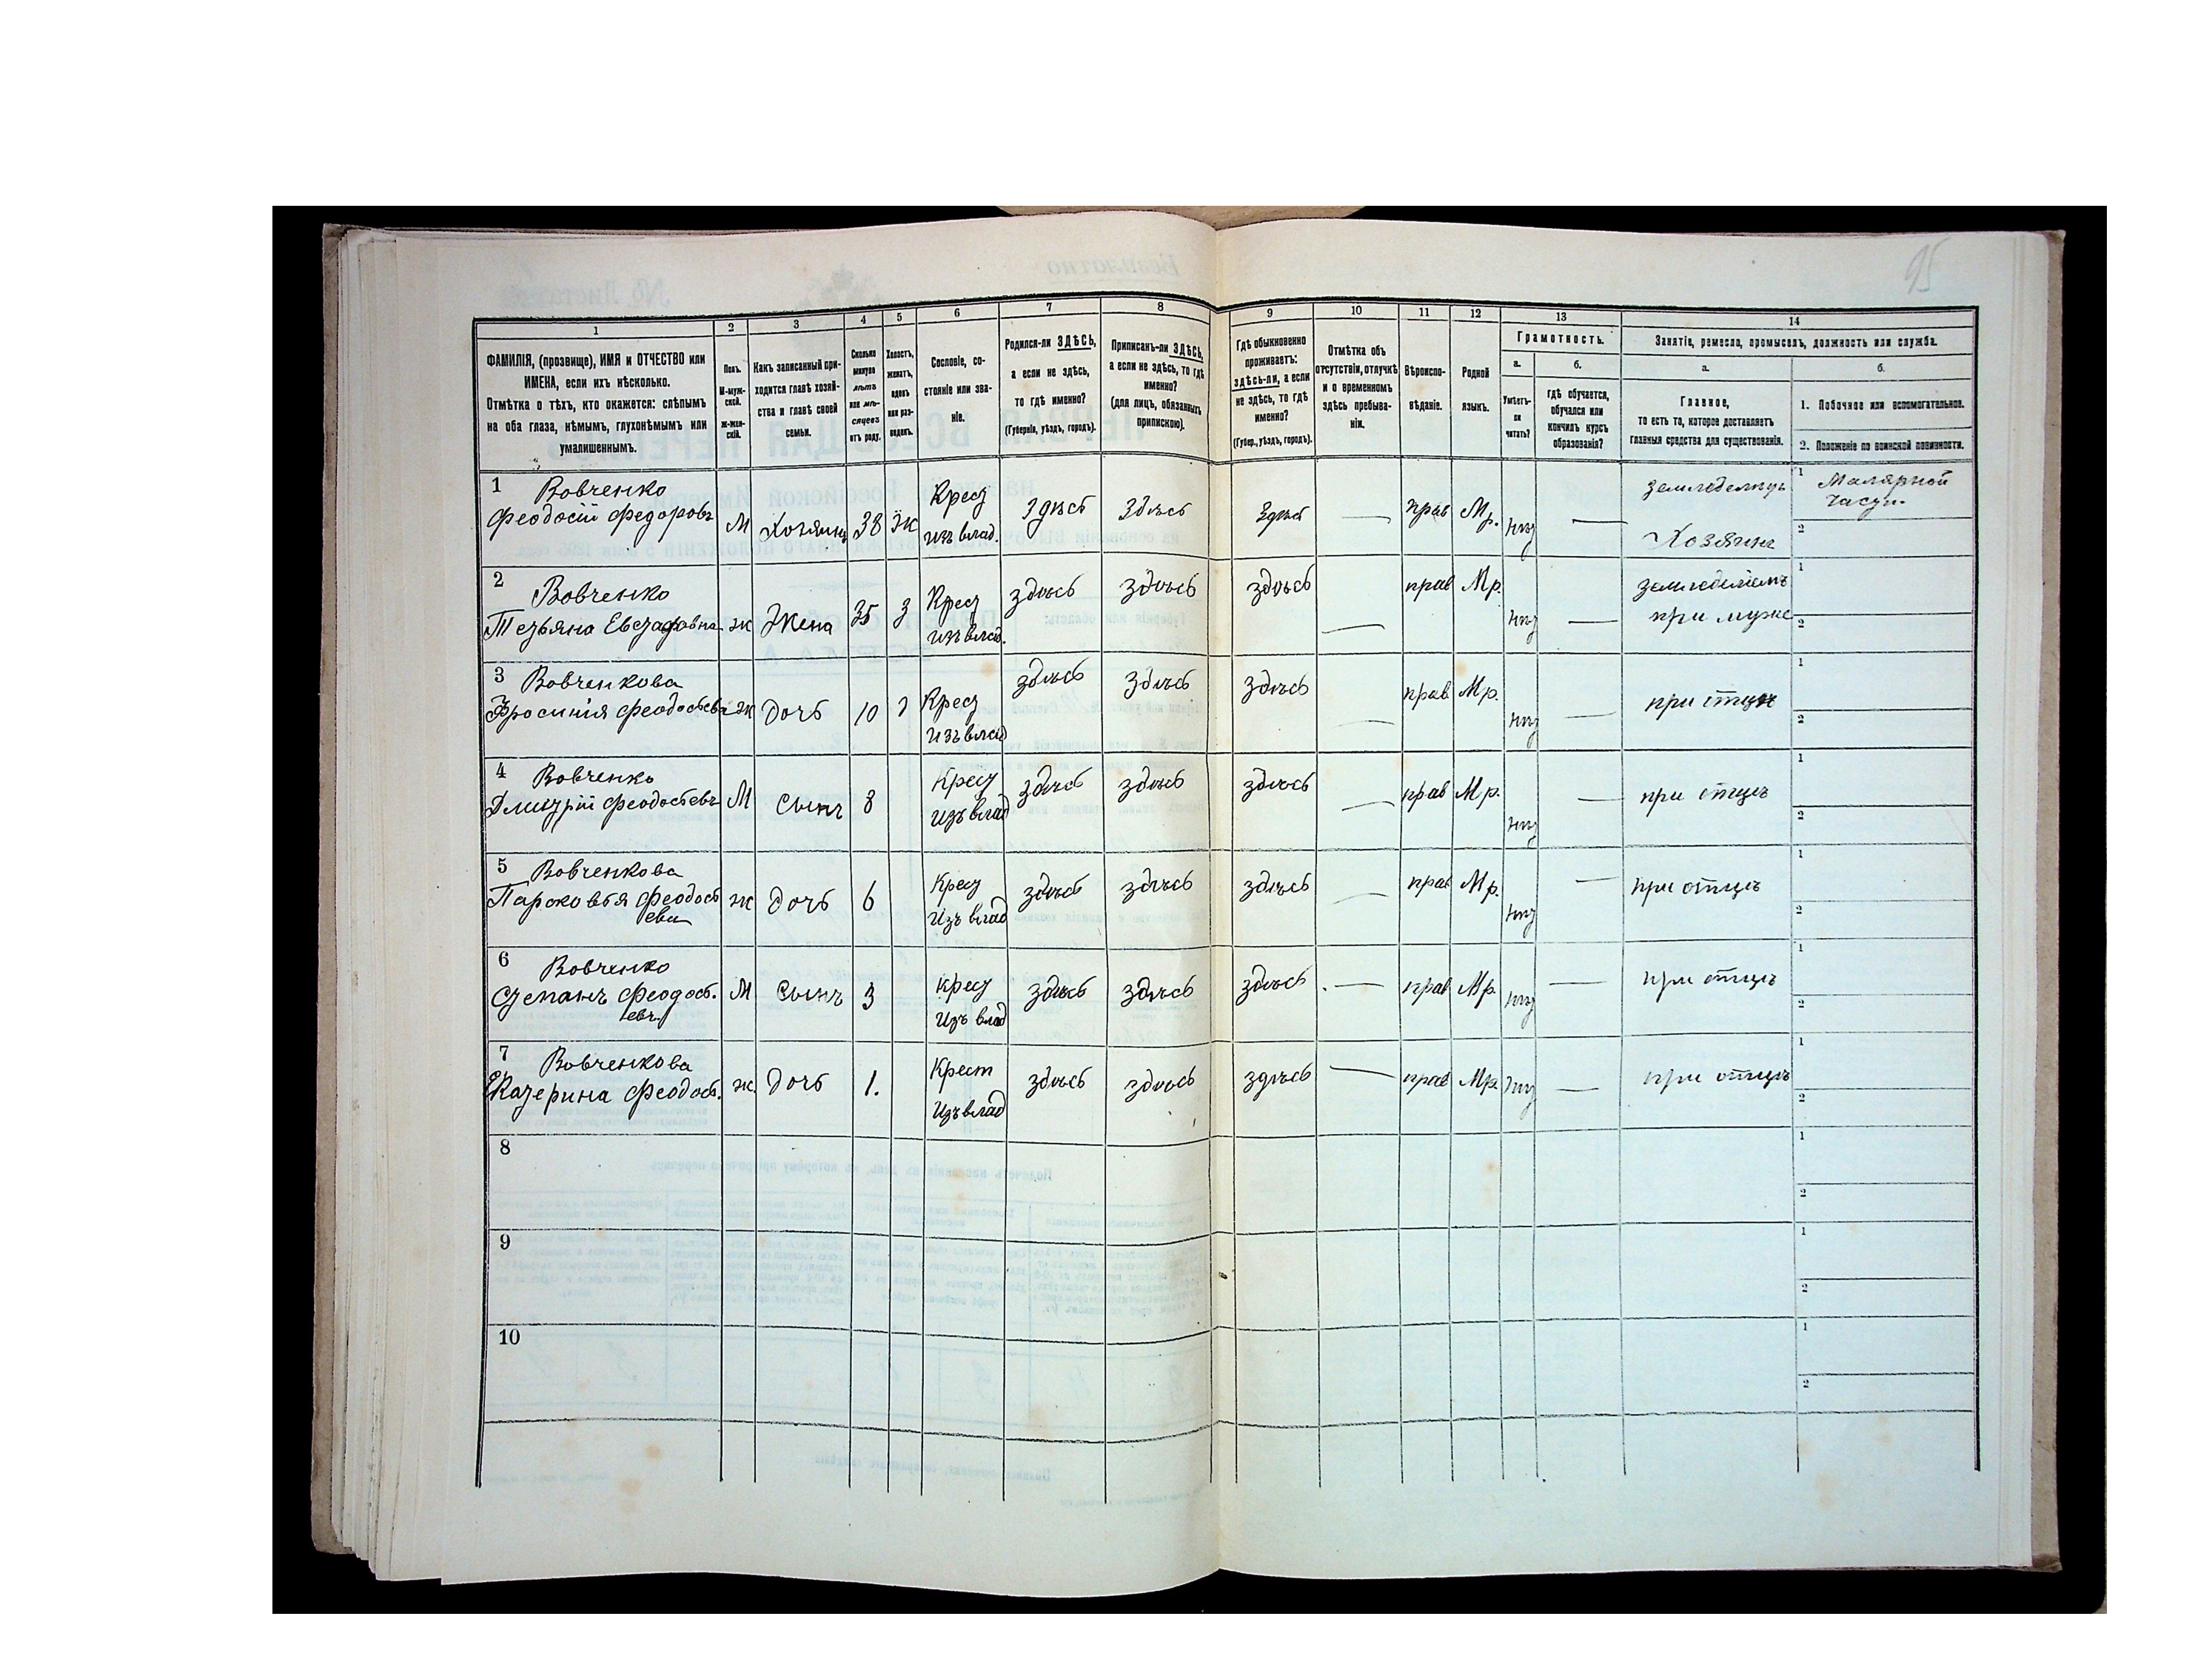 95
1
2
3
4
5
6
7
8
9
10
11
12
13
14
ФАМИЛІЯ, (прозвище), ИМЯ и ОТЧЕСТВО или
ИМЕНА, если ихъ нѣсколько.
Отмѣтка о тѣхъ, кто окажется: слѣпымъ
на оба глаза, нѣмымъ, глухонѣмымъ или
умалишеннымъ.
Полъ.
М-муж-
ской.
ж-жен-
скій.
Какъ записанный при-
ходится главѣ хозяй-
ства и главѣ своей
семьи.
Сколько
минуло
лѣтъ
или мѣ-
сяцевъ
отъ роду.
Холостъ,
женатъ,
вдовъ
или раз-
веденъ.
Сословіе, со-
стояніе или зва-
ніе.
Родился-ли ЗДѢСЬ,
а если не здѣсь,
то гдѣ именно?
(Губернія, уѣздъ, городъ).
Приписанъ-ли ЗДѢСЬ,
а если не здѣсь, то гдѣ
именно?
(для лицъ, обязанныхъ
припискою).
Гдѣ обыкновенно
проживаетъ:
здѣсь-ли, а если
не здѣсь, то гдѣ
именно?
(Губер., уѣздъ, городъ).
Отмѣтка объ
отсутствіи, отлучкѣ
и о временномъ
здѣсь пребыва-
ніи.
Вѣроиспо-
вѣданіе.
Родной
языкъ.
Грамотность.
а.
Умѣетъ-
ли
читать?
б.
гдѣ обучается,
обучался или
кончилъ курсъ
образованія?
Занятіе, ремесло, промыселъ, должность или служба.
а.
Главное,
то есть то, которое доставляетъ
главныя средства для существованія.
б.
1. Побочное или вспомогательное.
2. Положеніе по воинской повинности.
1 Вовченко
Феодосій Федоровъ М Хозяинъ 38 Ж Крест
изъ влад. здѣсь здѣсь здѣсь — прав Мр. нѣт — земледелецъ
Хозяинъ
1 Малярной
2
2 Вовченко
Тетьяна Евстафовна ж Жена 35 З Крест
изъ влад. здѣсь здѣсь здѣсь — прав Мр. нѣт — земледелiемъ
при муже
1
2
3 Вовченкова
Фросинія Феодосьева ж Дочь 10 Крест
изъ влад здѣсь здѣсь здѣсь — прав Мр. нѣт — при отцѣ
1
2
4 Вовченко
Дмитрій Феодосьевъ М Сынъ 8 Крест
изъ влад здѣсь здѣсь здѣсь — прав Мр. нѣт — при отцѣ
1
2
5 Вовченкова
Парсковья Феодось
ева ж Дочь 6 Крест
изъ влад здѣсь здѣсь здѣсь — прав Мр. нѣт — при отцѣ
1
2
6 Вовченко
Степанъ Феодось.
евъ М Сынъ 3 Крест
изъ влад здѣсь здѣсь здѣсь — прав Мр. нѣт — при отцѣ
1
2
7 Вовченкова
Екатерина Феодось. ж. Дочь 1. Крест
изъ влад здѣсь здѣсь здѣсь — прав Мр. нѣт — при отцѣ
1
2
8
1
2
9
1
2
10
1
2